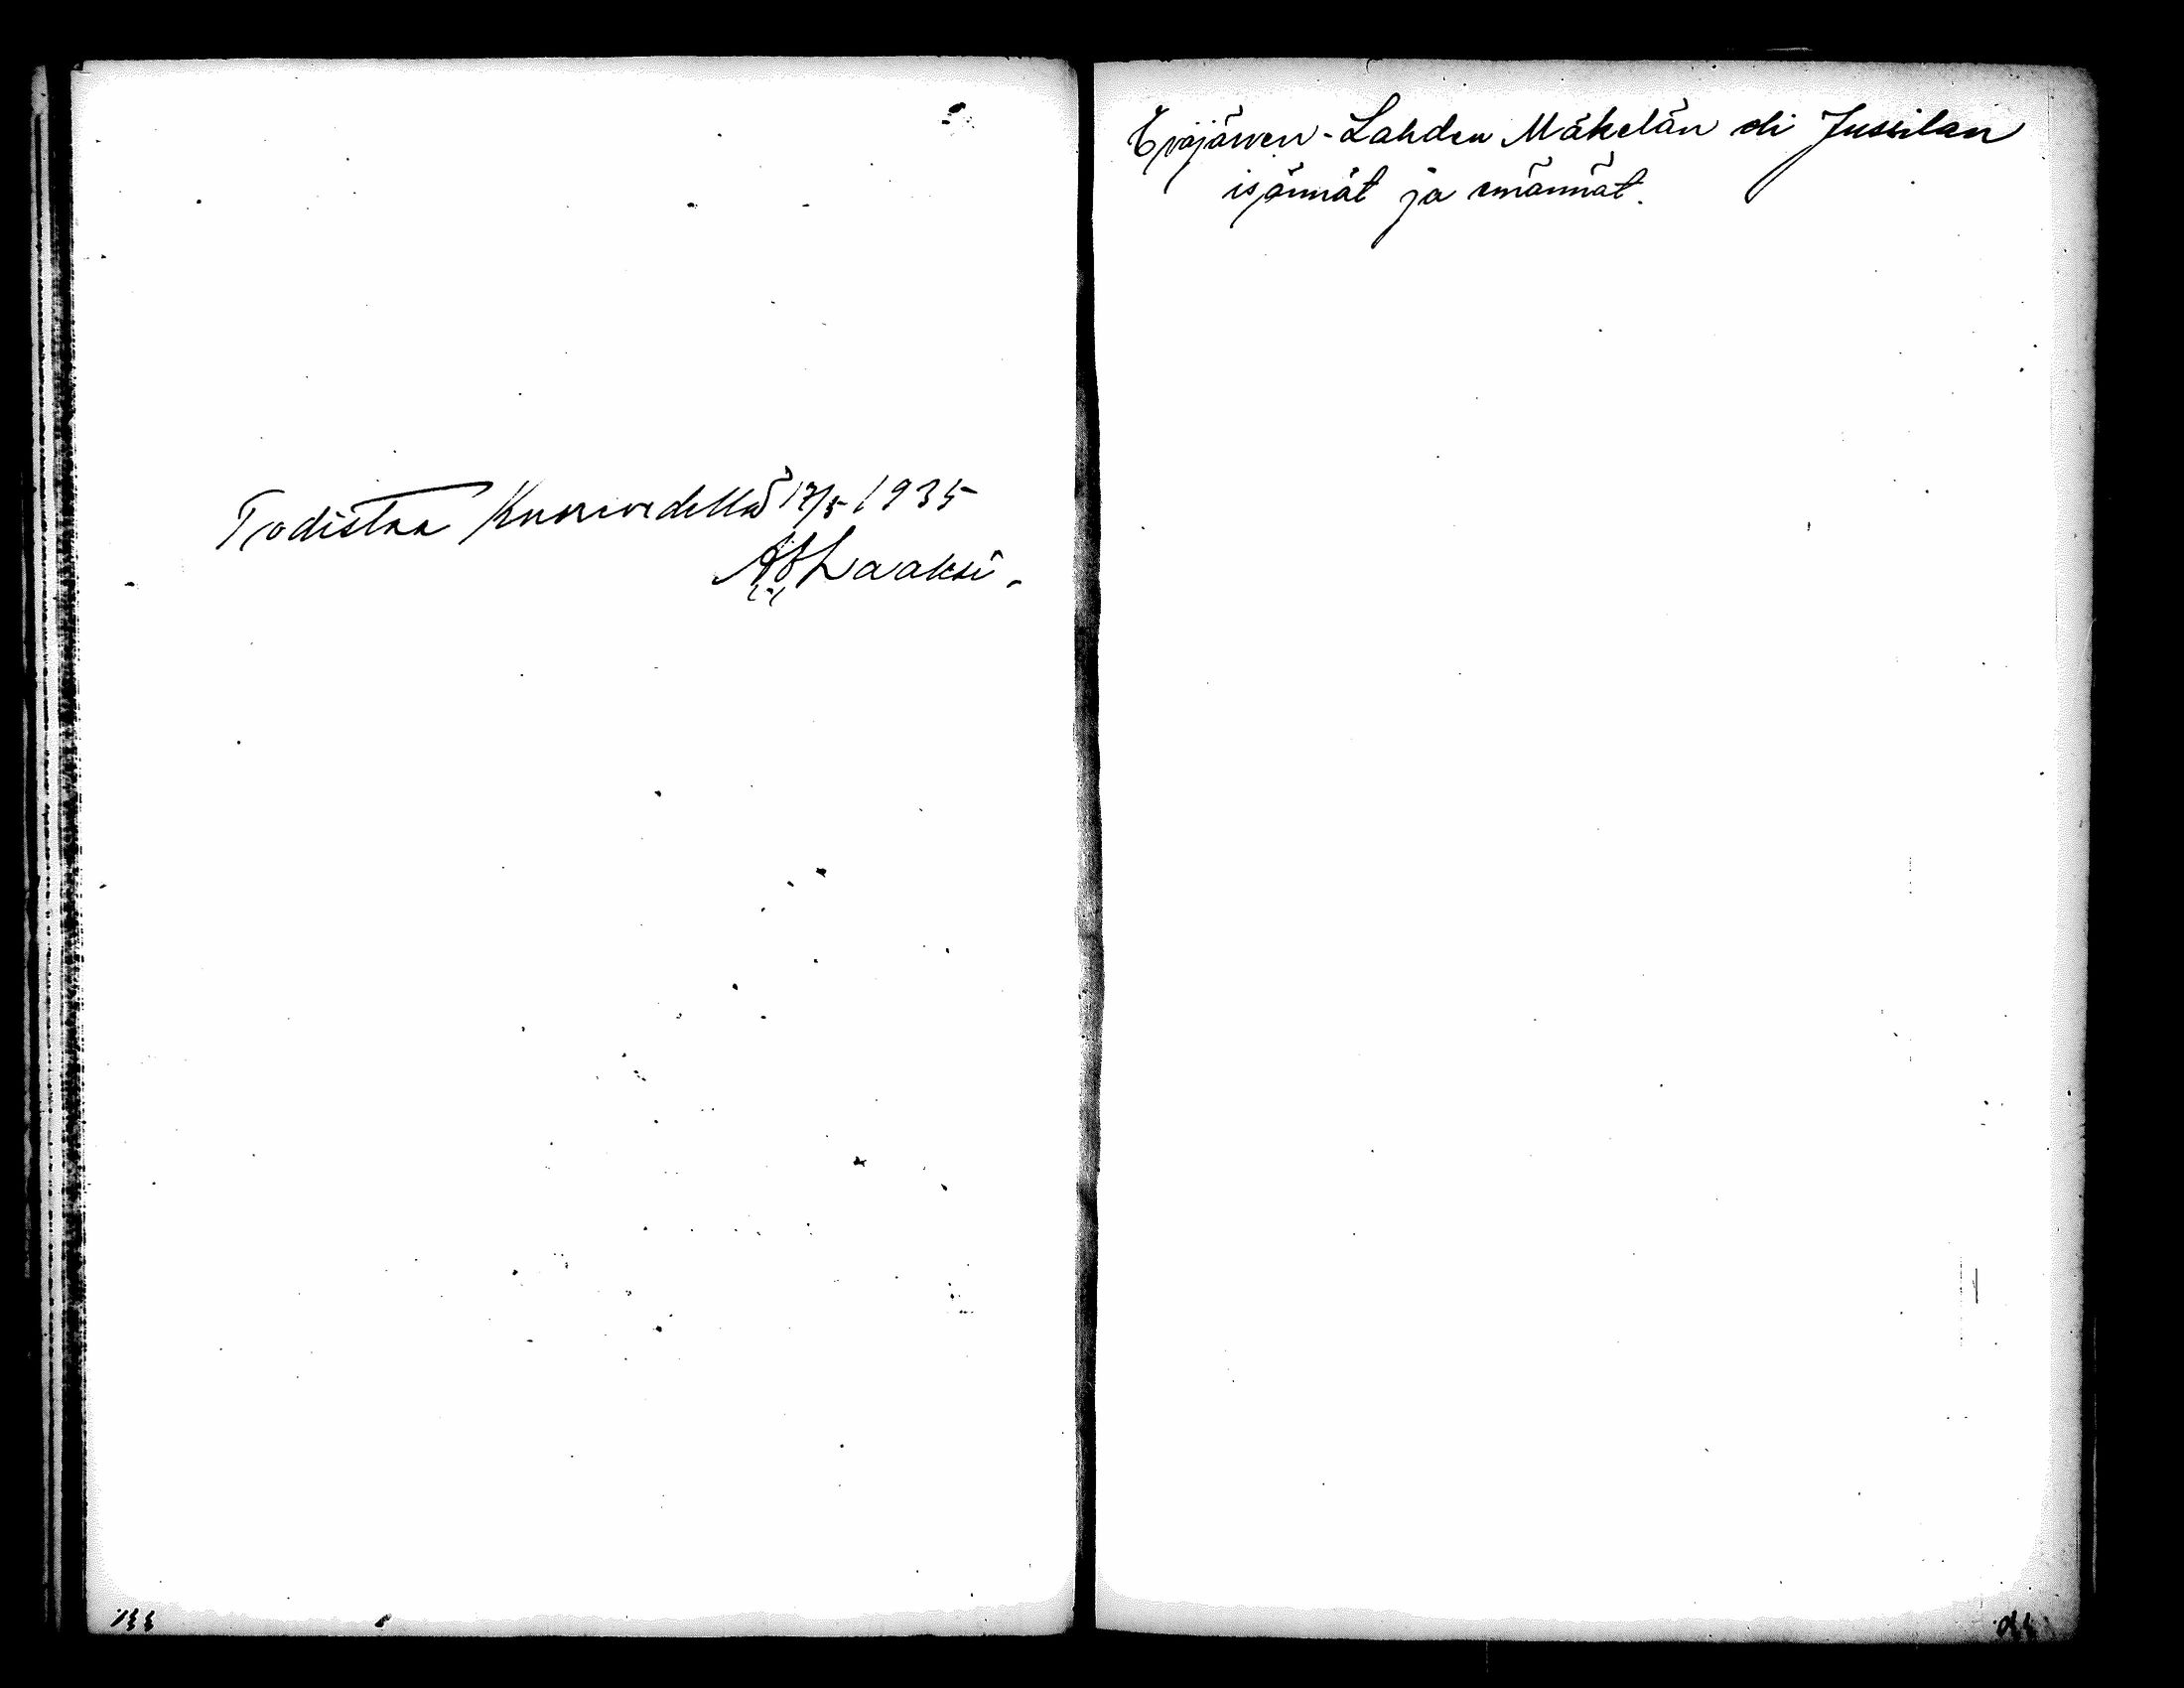 Todistaa Kuorevedellä 17/5 1935
Laaksi.
Eväjärven-Lahden Mäkelän eli Jussilan
isännät ja emännät.